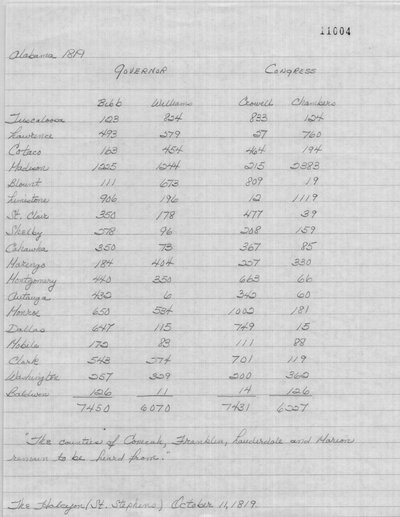 11004
Alabama 1819
GOVERNOR CONGRESS
Bibb Williams Crowell Chambers
Tuscaloosa 123 824 833 124
Lawrence 493 279 27 760
Cotaco 163 454 464 194
Madison 1225 1244 215 2383
Blount 111 673 809 19
Limestone 906 196 12 1119
St. Clair 350 178 477 39
Shelby 278 96 208 159
Cahawba 350 73 367 85
Marengo 184 404 257 330
Montgomery 440 350 663 66
Autauga 432 6 342 60
Monroe 650 534 1002 181
Dallas 647 115 749 15
Mobile 172 83 111 88
Clark 543 274 701 119
Washington 257 329 200 362
Baldwin 126 11 14 126
7450 6070 7431 6227
"The counties of Conecuh, Franklin, Lauderdale and Marion
remain to be heard from."
The Halcyon (St. Stephens) October 11, 1819.